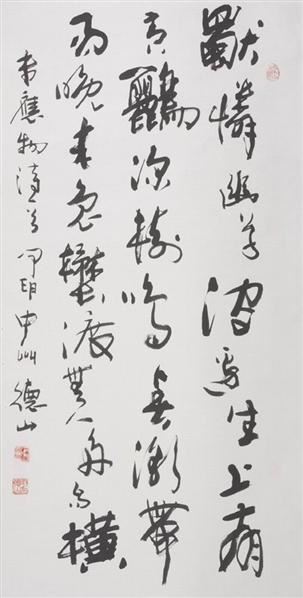 獨憐幽草澗邊生上有
黄鸝深樹鳴春潮帶
雨晚来急壄渡無人舟自橫
韋應物 中州德山